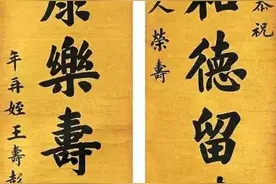 恭祝
和德留
人榮壽
康樂壽
年再姪王壽彭